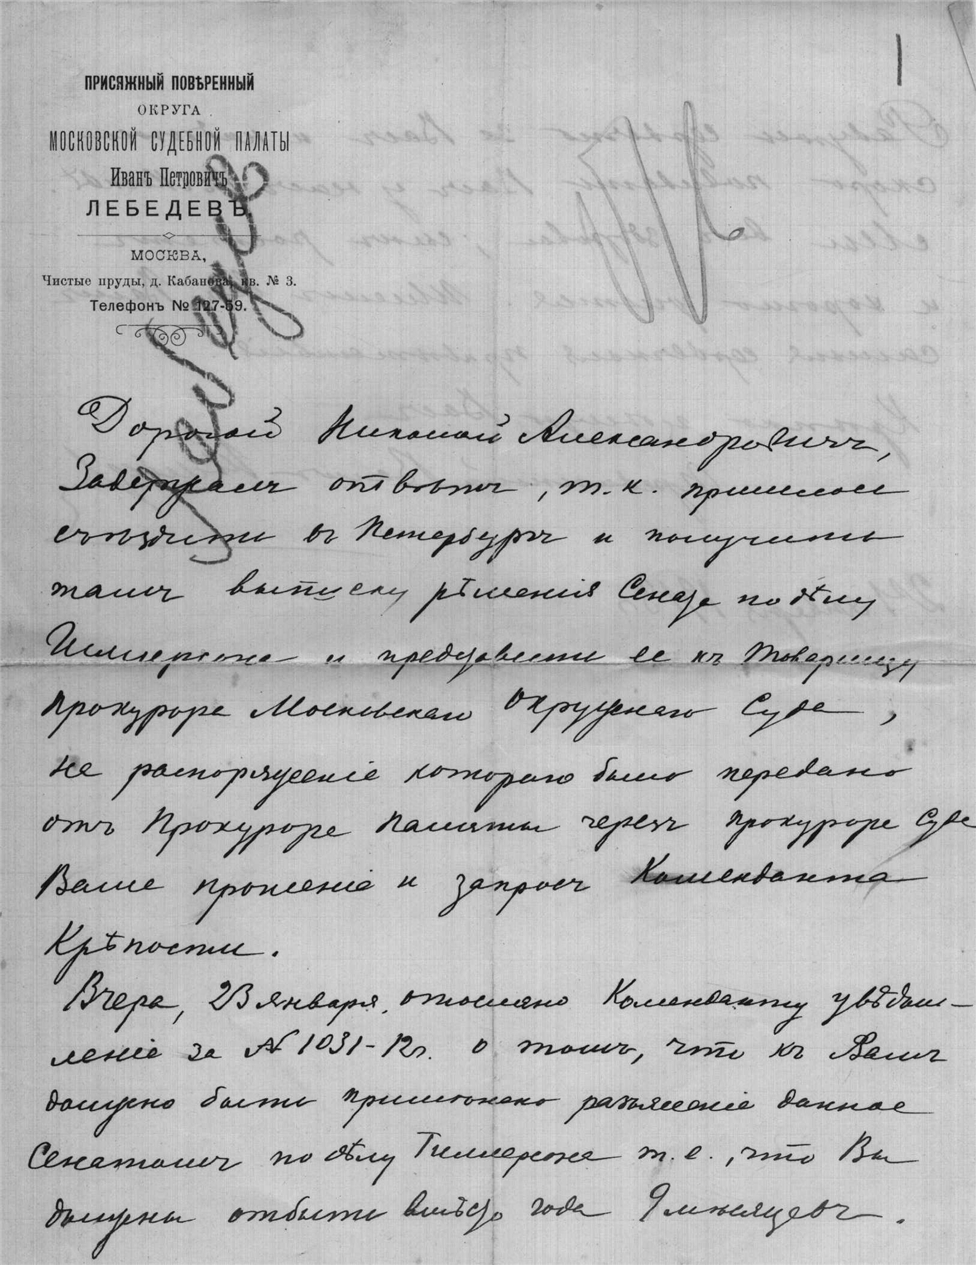 ПРИСЯЖНЫЙ ПОВѢРЕННЫЙ
ОКРУГА
МОСКОВСКОЙ СУДЕБНОЙ ПАЛАТЫ
Иванъ Петровичъ
ЛЕБЕДЕВЪ.
МОСКВА,
Чистые пруды, д. Кабанова, кв. № 3.
Телефонъ № 127-59.
Лебедев
Дорогой Николай Александровичъ,
Задержалъ отвѣтъ, т. к. пришлось
съѣздить въ Петербургъ и получить
тамъ выписку рѣшенія Сената по дѣлу
и представить ее къ Товарищу
Прокурора Московскаго Окружнаго Суда,
на распоряженіе котораго было передано
отъ Прокурора Палаты черезъ прокурора Суда
Ваше прошеніе и запросъ Коменданта
Крѣпости.
Вчера, 23 января, отослано Коменданту увѣдом-
леніе за № 1031-12г. о томъ, что къ Вамъ
должно быть примѣнено разъясненіе данное
Сенатомъ по дѣлу т. е., что Вы
должны отбыть вмѣсто года 9 мѣсяцевъ.